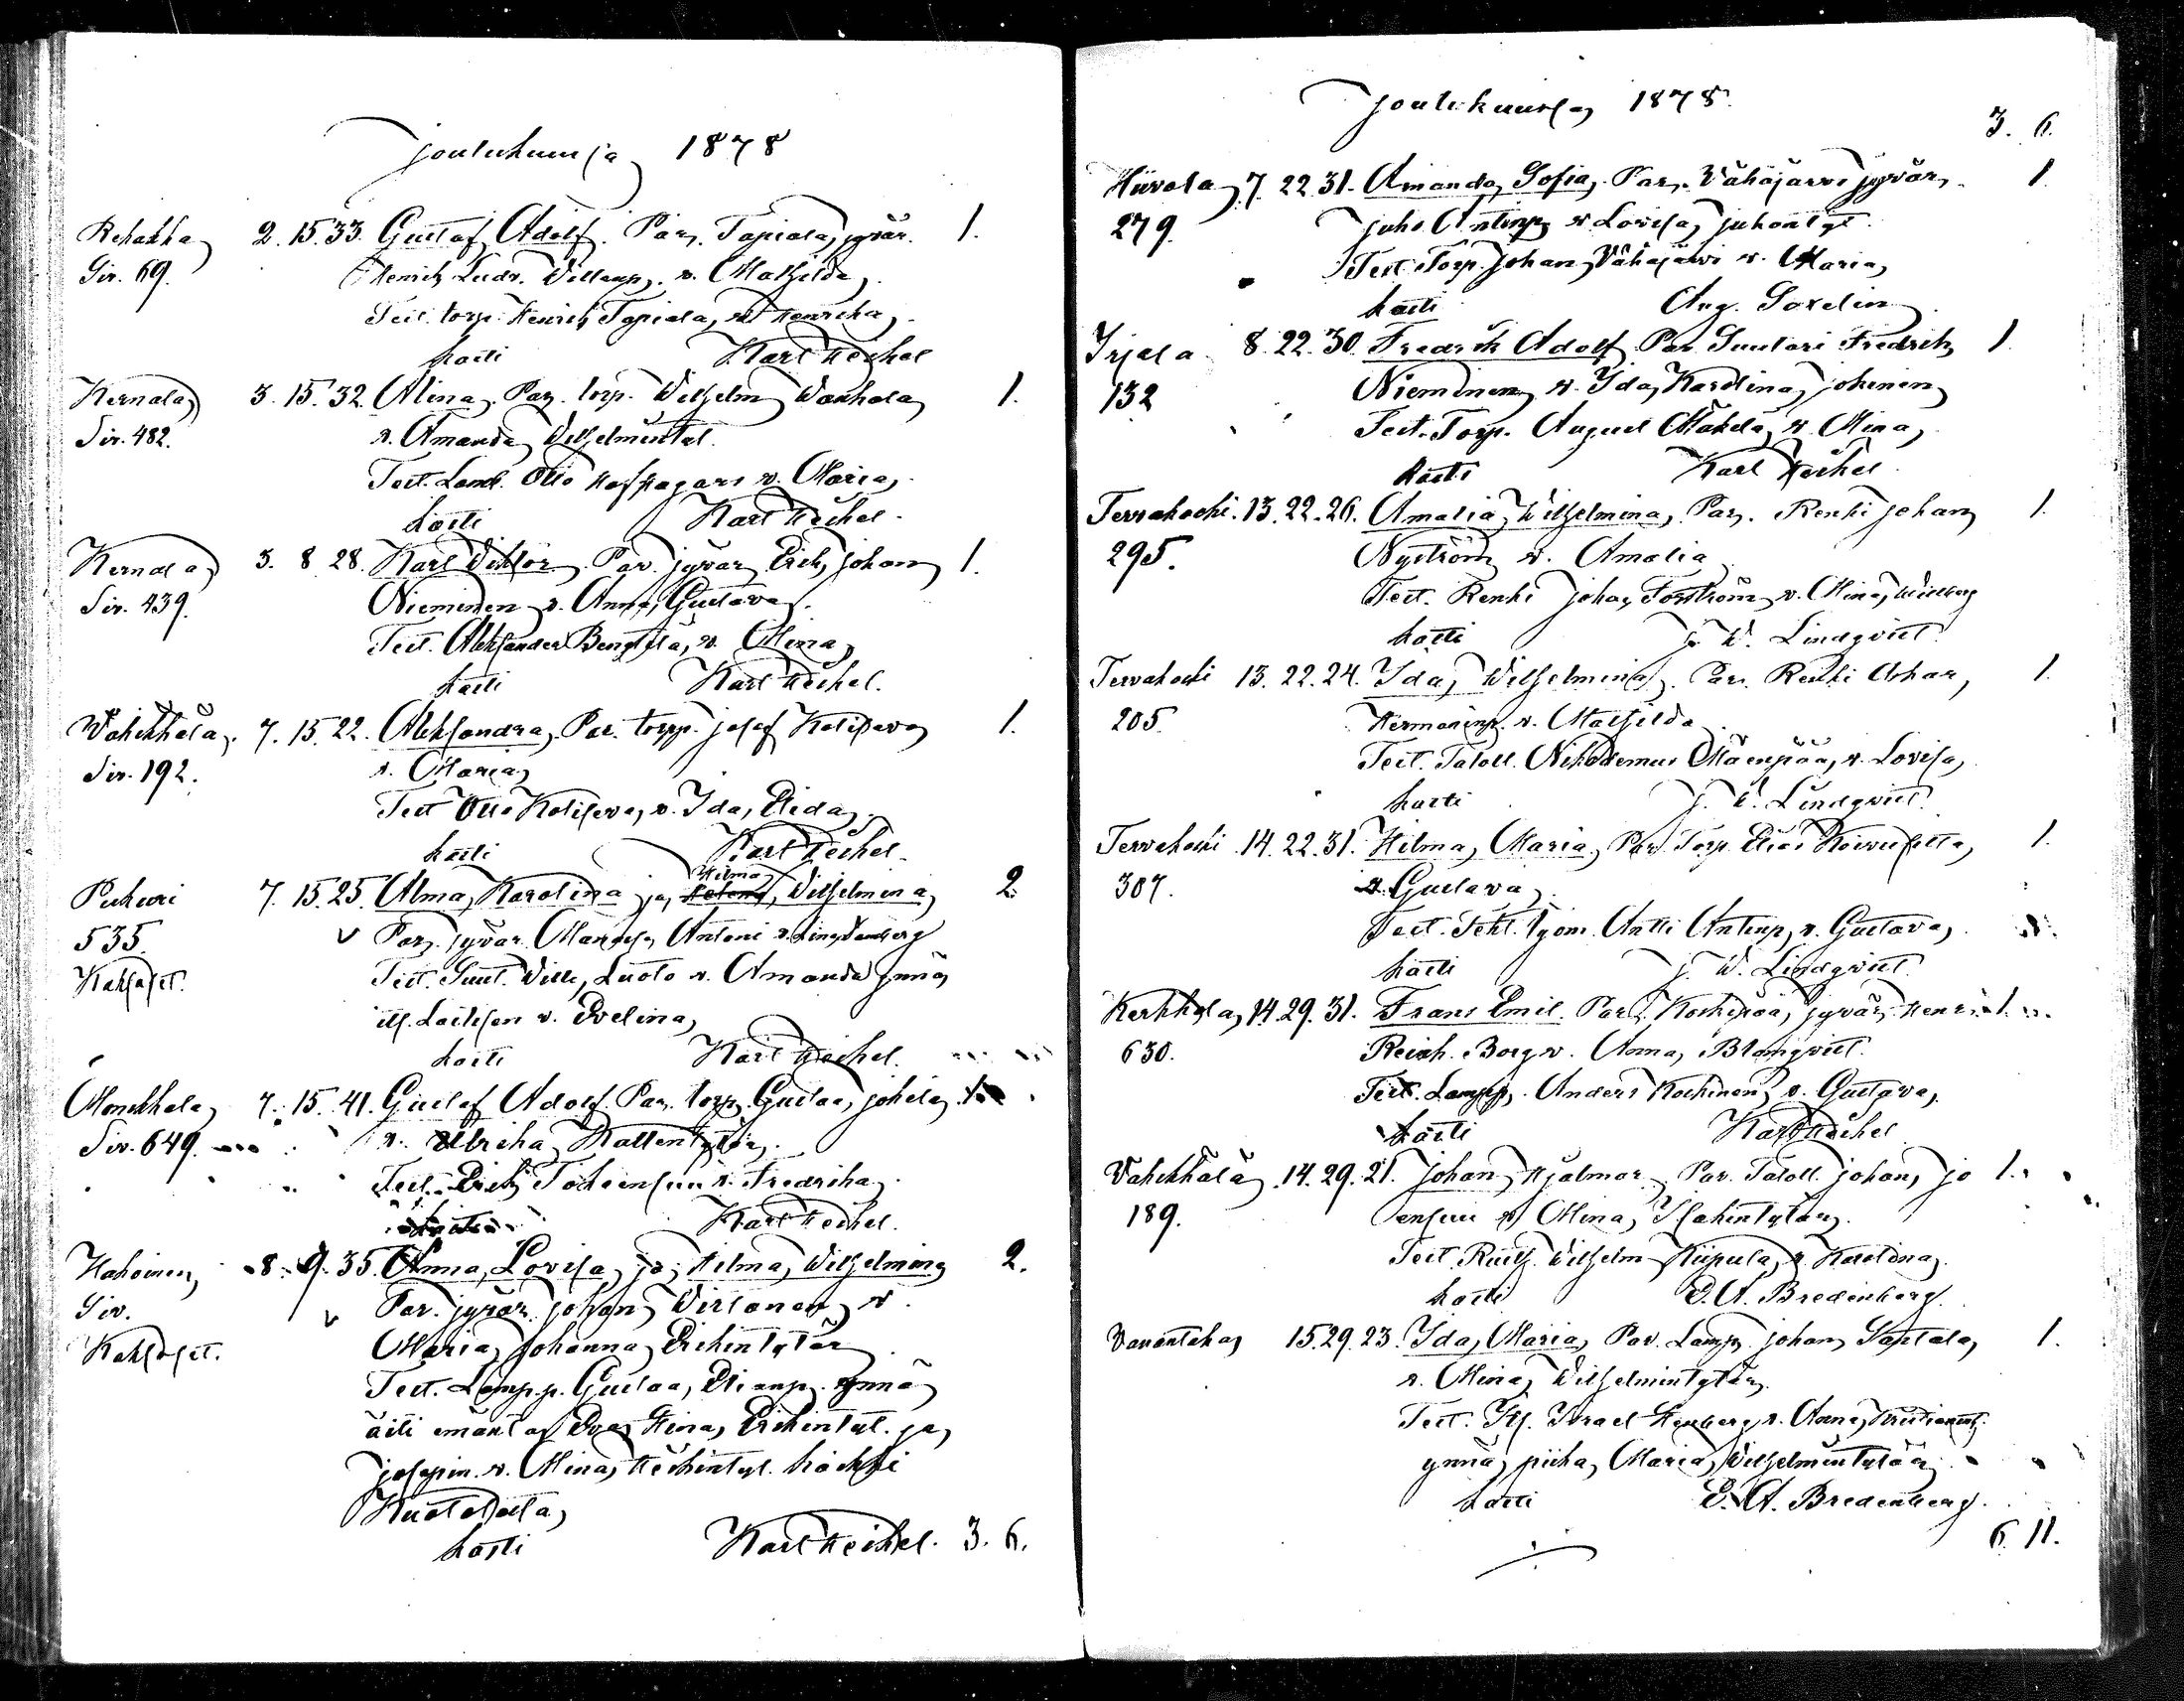 Joulukuussa 1878
Rehakka 2. 15. 33. Gustaf Adolf. Par. Tapiola, jyvär. 1.
Siv. 69. Henrik Ludv. Villenp. v. Mathilda
Test. torp. Henrik Tapiola, v. Henrika
kasti Karl Heikel
Kernala 3. 15. 32. Alina. Par. torp. Wilhelm Wanhala 1.
Siv. 482. v. Amanda Wilhelmintyt.
Test. Lamd. Otto v. Maria,
kasti Karl Heikel.
Kernala 3. 8 28. Karl Viktor Par. jyvär. Erik Johan 1.
Siv. 439. Nieminen v. Anna, Gustava.
Test. Aleksander Bengtilä, v. Mina,
kasti Karl Heikel.
Vähikkälä. 7. 15. 22. Aleksandra, Par. torpp. Josef Kotisova 1.
Siv. 192. v. Maria,
Test Otto Kotiseva, v. Ida, Elida,
kasti Karl Heikel.
Hilma
Puhuri 7. 15. 25. Alma, Karolina ja, Helena, Wilhelmina 2.
535. v Par. jyvär. Antoni v. Lina
Kaksoset. Test. Suut. Wille, Luoto v. Amanda ynnä
its. v. Evelina,
kasti Karl Heikel.
Monikkala 7. 15. 41. Gustaf Adolf. Par. torp. Gustaa, Johila 1.
Siv. 649. v. Ulrika,
Test. Erik v. Fredrika.
Karl Heikel.
Hakoinen 8. 9. 35. Anna, Lovisa, ja, Hilma, Wilhelmina 2.
Siv. v Par. jyvär. Johan Virtanen v.
Kaksoset. Maria, Johanna, Erikintytär
Test. Lamp.p. Gustaa, Elianp. ynnä
äiti emäntä Eva, Stina, Erikintyt. ja,
Josepin. v. Mina, Heikintyt. kaikki

kasti Karl Heikel. 3. 6.
Joulukuussa 1878.
3. 6.
Hiivola 7. 22 31. Amanda, Sofia, Par. Vähäjärvi jyvär, 1.
279. Juho Antinp v. Lovisa, Juhontyt.
Test. Torp. Johan, Vähäjärvi v. Maria,
kasti Aug. Soxelin
Irjala 8. 22. 30. Fredrik Adolf. Par. Suutari Fredrik 1.
132 Nieminen v. Ida, Karolina,
Test. Torp. August Mäkelä, v. Mina,
kasti Karl Heikel.
Tervakoski. 13. 22. 26. Amalia, Wilhelmina, Par. Renki Johan 1.
295. Nyström v. Amalia
Test. Renki Johan, Forsström v. Mina,
kasti J. W. Lindqvist.
Tervakoski 13. 22. 24. Ida, Wilhelmina. Par. Renki Oskar, 1.
205. Hermaninp. v. Mathilda
Test. Taloll. Nikodemus Mäenpää, v. Lovisa,
kasti J. W. Lindqvist.
Tervakoski 14. 22. 31. Hilma, Maria, Par. Torp. Elias Koivusilta, 1.
307. v. Gustava
Test. Teht. työm. Antti Antinp, v. Gustava,
kasti J. W. Lindqvist.
Kerkkola, 14. 29. 31. Frans Emil. Par. Koskipää, jyvär. Henrik 1.
630. Reinh. Borg v. Anna, Blomqvist.
Test. Lampp. Anders Koskinen, v. Gustava,
kasti Karl Heikel
Vähikkälä 14. 29. 21. Johan, Hjalmar, Par. Taloll. Johan, Jo 1.
189. ensuu v. Mina, Isakintytär.
Test. Rustt. Wilhelm Kiipula, v. Karolina,
kasti E. A. Bredenberg.
Vanantaka 15. 29. 23. Ida, Maria, Par. Lamp. Johan Santala, 1.
v. Mina, Wilhelmintytär
Test. Its. Israel Stenberg v. Anna,
ynnä, piika, Maria, Wilhelmintytär
kasti E. A. Bredenberg.
6. 11.